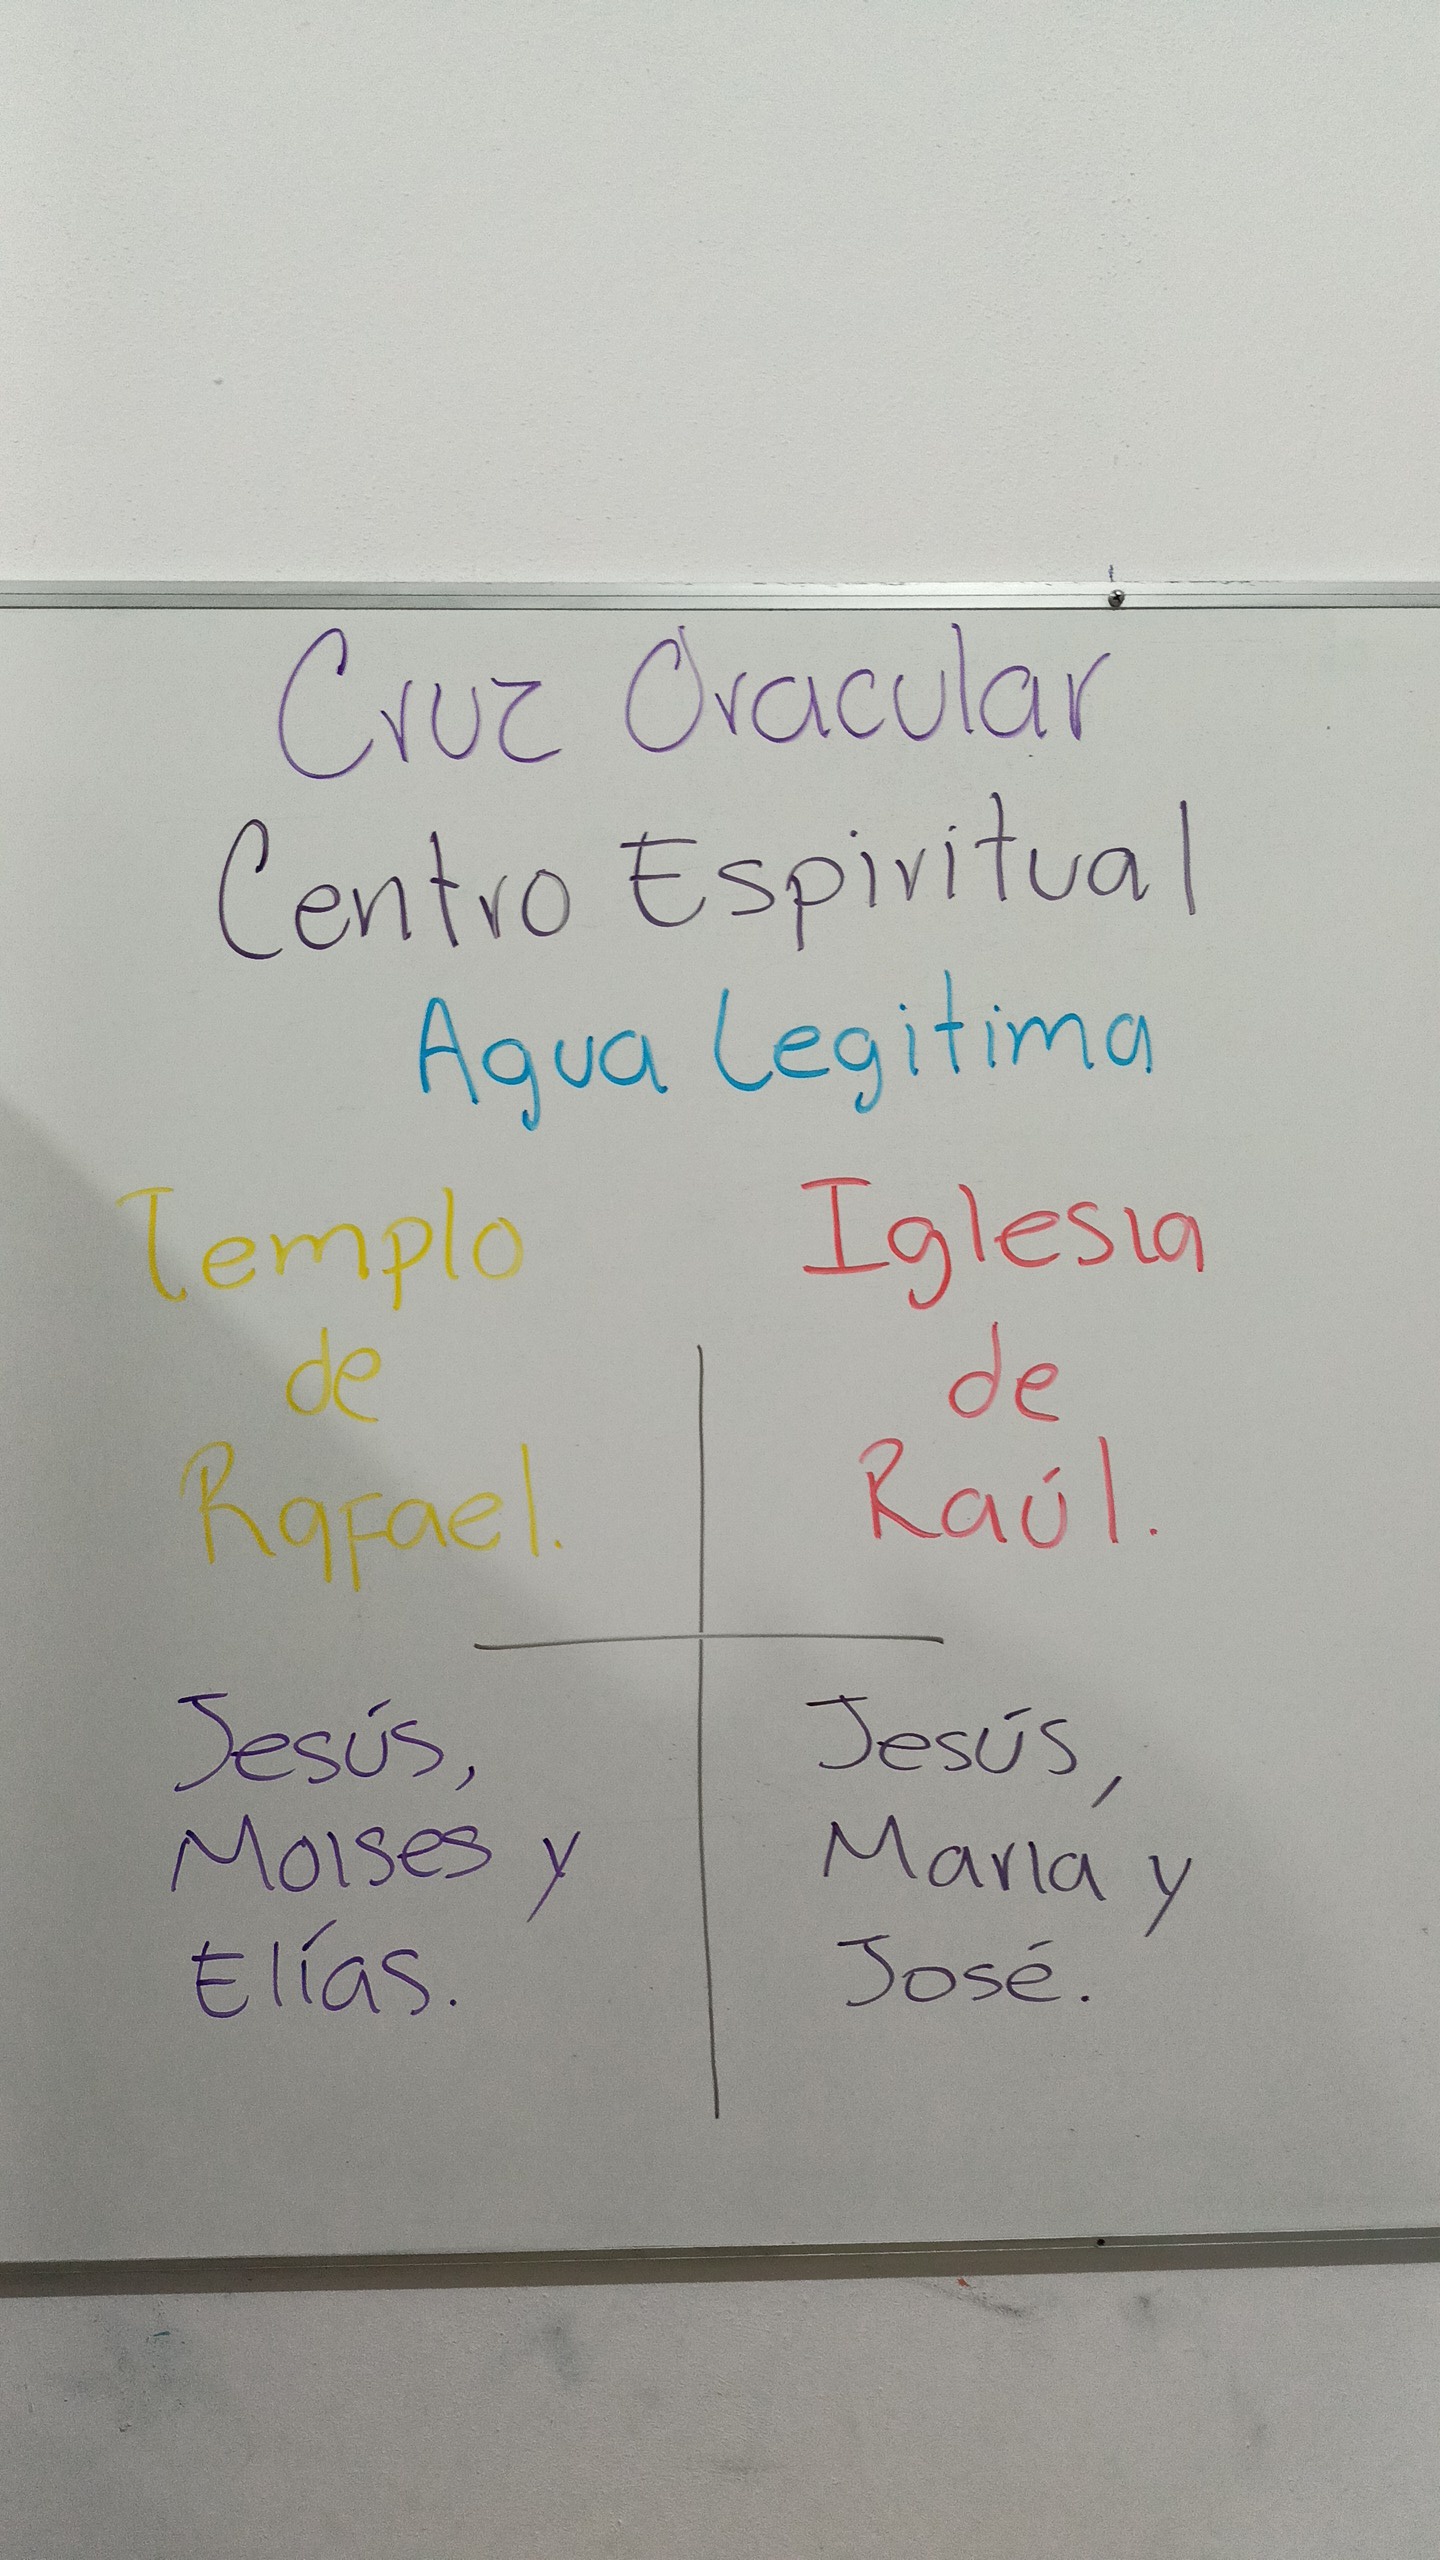 Cruz Oracular
Centro Espiritual
Agua Legitima
Templo
de
Rafael.
Jesús,
Moises y
Elías.
Iglesia
de
Raúl.
Jesús,
María y
José.